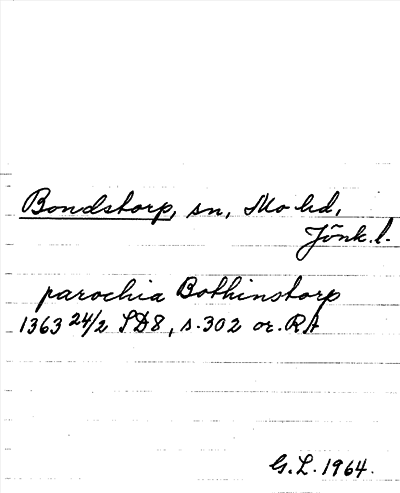 Bondstorp, sn, Mo hd,
Jönk. l.
parochia Bothinstorp
1363 24/2 SD8, s. 302 or. RA
G.L. 1964.